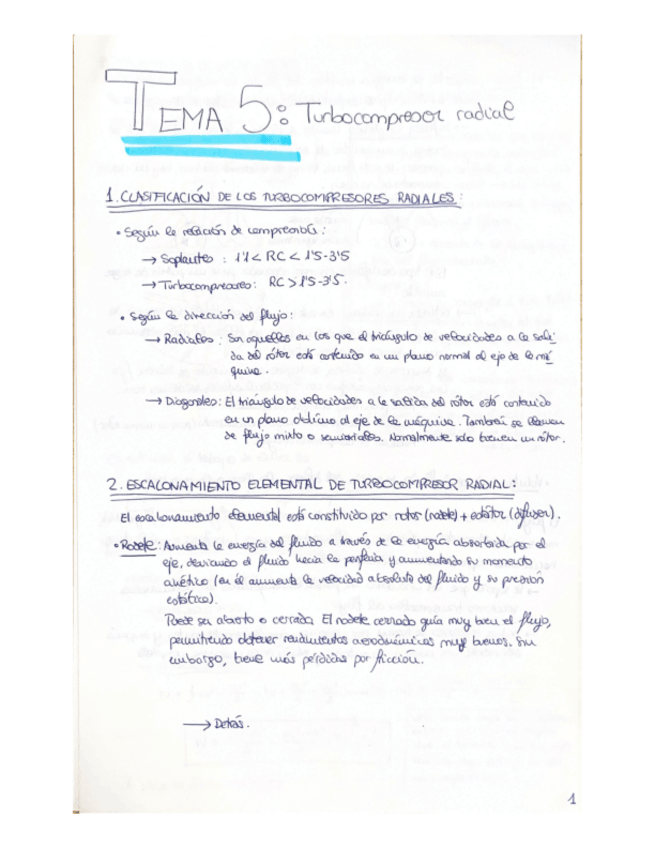 TEMA 5: Turbocompresor radial
1. CLASIFICACIÓN DE LOS TURBOCOMPRESORES RADIALES:
• Según la relación de compresión:
→ Soplantes : 1'1 < RC < 1'5-3'5
→ Turbocompresores: RC > 1'5-3'5.
• Según la dirección del flujo:
→ Radiales : Son aquellos en los que el triángulo de velocidades a la sali-
da del rótor está contenido en un plano normal al eje de la má-
quina.
→ Diagonales: El triángulo de velocidades a la salida del rótor está contenido
en un plano oblicuo al eje de la máquina. También se llaman
de flujo mixto o semiaxiales. Normalmente solo tienen un rótor.
2. ESCALONAMIENTO ELEMENTAL DE TURBOCOMPRESOR RADIAL:
El escalonamiento elemental está constituido por rotor (rodete) + estátor (difusor).
• Rodete: Aumenta la energía del fluido a través de la energía absorbida por el
eje, desviando el fluido hacia la periferia y aumentando su momento
cinético (en él aumenta la velocidad absoluta del fluido y su presión
estática).
Puede ser abierto o cerrado. El rodete cerrado guía muy bien el flujo,
permitiendo obtener rendimientos aerodinámicos muy buenos. Sin
embargo, tiene más pérdidas por fricción.
→ Detrás.
1